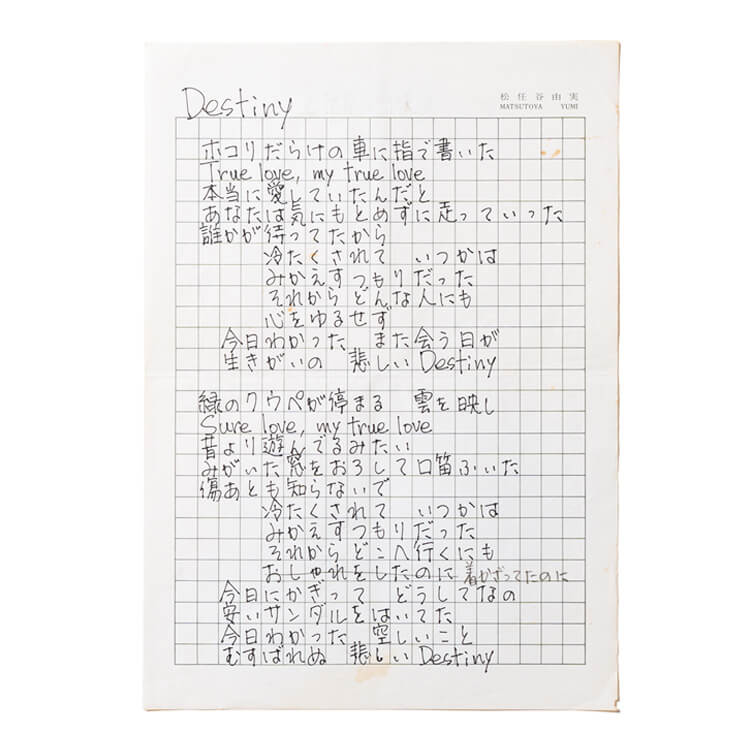 松任谷由実
MATSUTOYA YUMI
Destiny
ホコリだらけの車に指で書いた
True love, my true love
本当に愛していたんだと
あなたは気にもとめずに走っていった
誰かが待ってたから
冷たくされて いつかは
みかえすつもりだった
それからどんな人にも
心をゆるせず
今日わかった また会う日が
生きがいの 悲しいDestiny
緑のクウペが停まる 雲を映し
Sure love, my true love
昔より遊んでるみたい
みがいた窓をおろして口笛ふいた
傷あとも知らないで
冷たくされて いつかは
みかえすつもりだった
それからどこへ行くにも
おしゃれをしたのに 着かざってたのに
今日にかぎって どうしてなの
安いサンダルをはいてた
今日わかった 空しいこと
むすばれぬ 悲しいDestiny